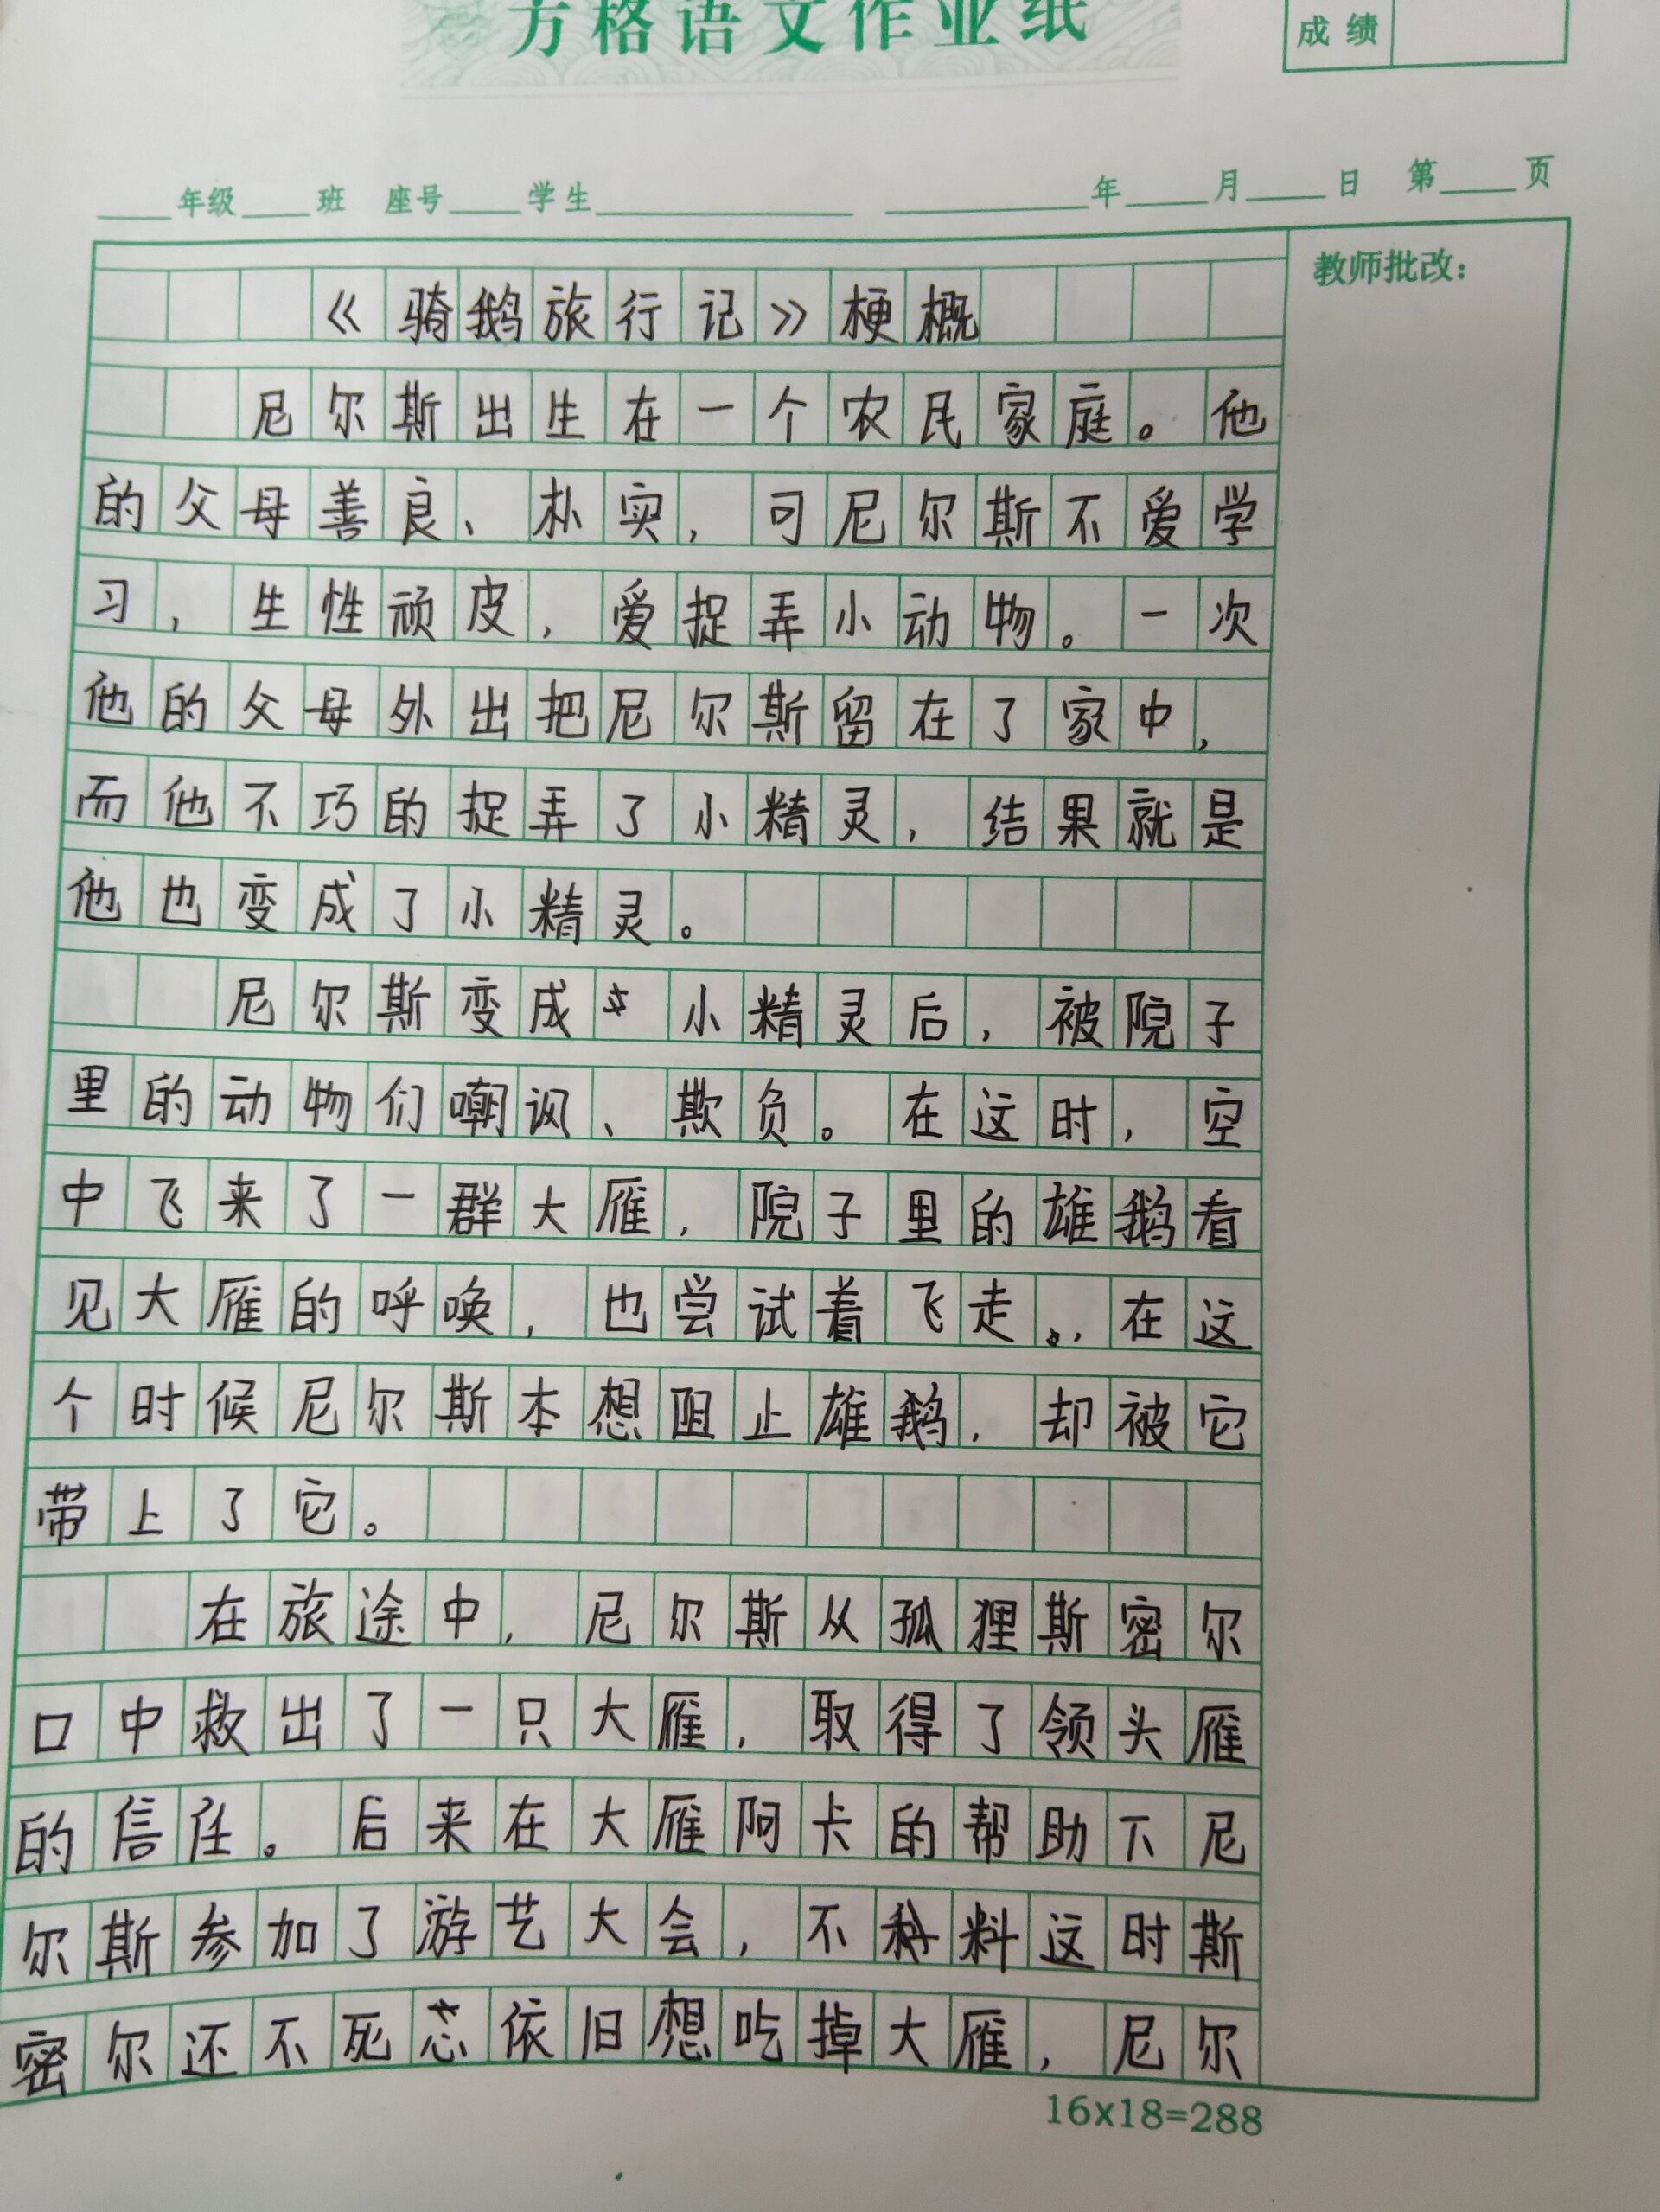 方格语文作业纸
成绩
年级 班 座号 学生 年 月 日 第 页
教师批改：
《骑鹅旅行记》梗概
尼尔斯出生在一个农民家庭。他
的父母善良、朴实，可尼尔斯不爱学
习，生性顽皮，爱捉弄小动物。一次
他的父母外出把尼尔斯留在了家中，
而他不巧的捉弄了小精灵，结果就是
他也变成了小精灵。
尼尔斯变成小精灵后，被院子
里的动物们嘲讽、欺负。在这时，空
中飞来了一群大雁，院子里的雄鹅看
见大雁的呼唤，也尝试着飞走，在这
个时候尼尔斯本想阻止雄鹅，却被它
带上了它。
在旅途中，尼尔斯从狐狸斯密尔
口中救出了一只大雁，取得了领头雁
的信任。后来在大雁阿卡的帮助下尼
尔斯参加了游艺大会，不料这时斯
密尔还不死心依旧想吃掉大雁，尼尔
16x18=288